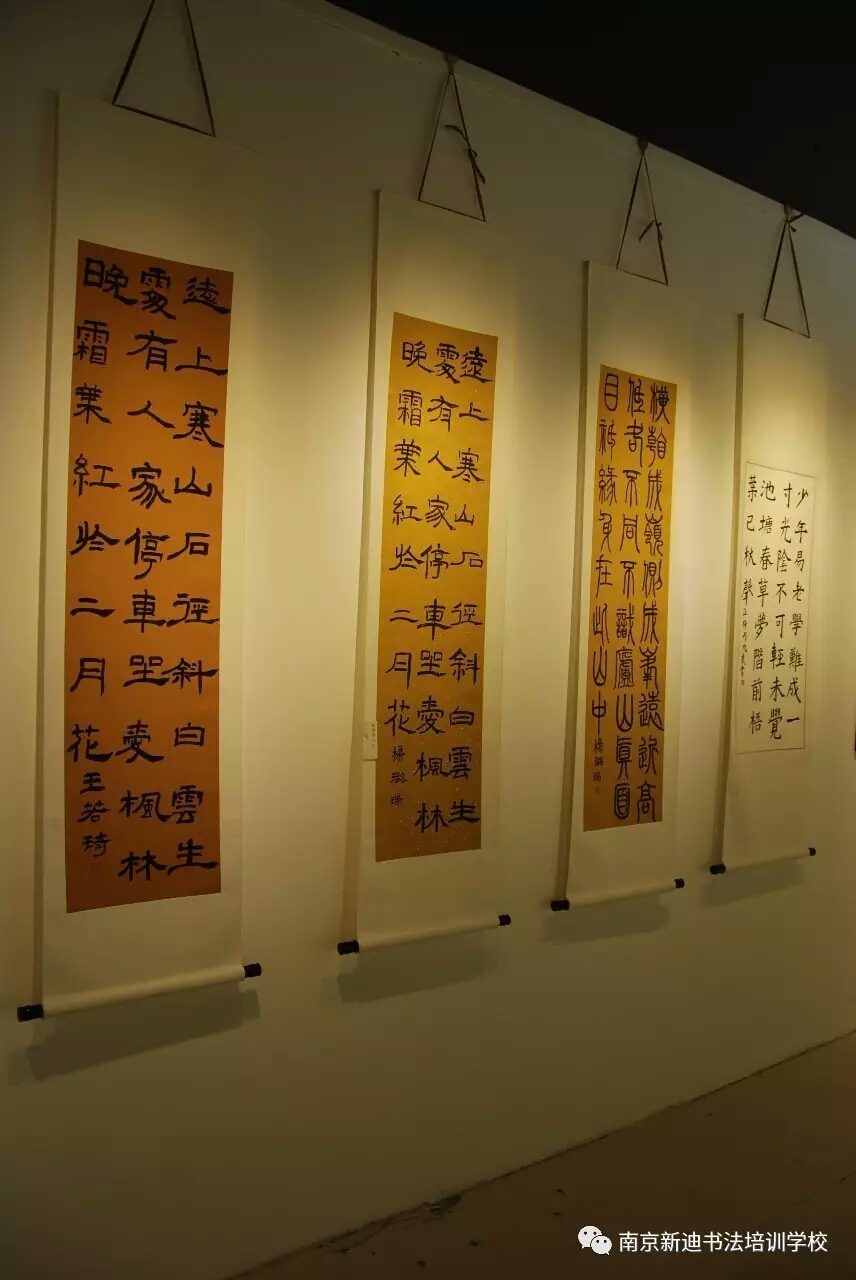 遠上寒山石徑斜白雲生
處有人家停車坐愛楓林
晚霜葉紅於二月花
王若琦
遠上寒山石徑斜白雲生
處有人家停車坐愛楓林
晚霜葉紅於二月花
楊璐
橫看成嶺側成峯遠近高
低各不同不識廬山真面
目祇緣身在此山中
楊璐
少年易老學難成一
寸光陰不可輕未覺
池塘春草夢階前梧
葉已秋聲
南京新迪书法培训学校